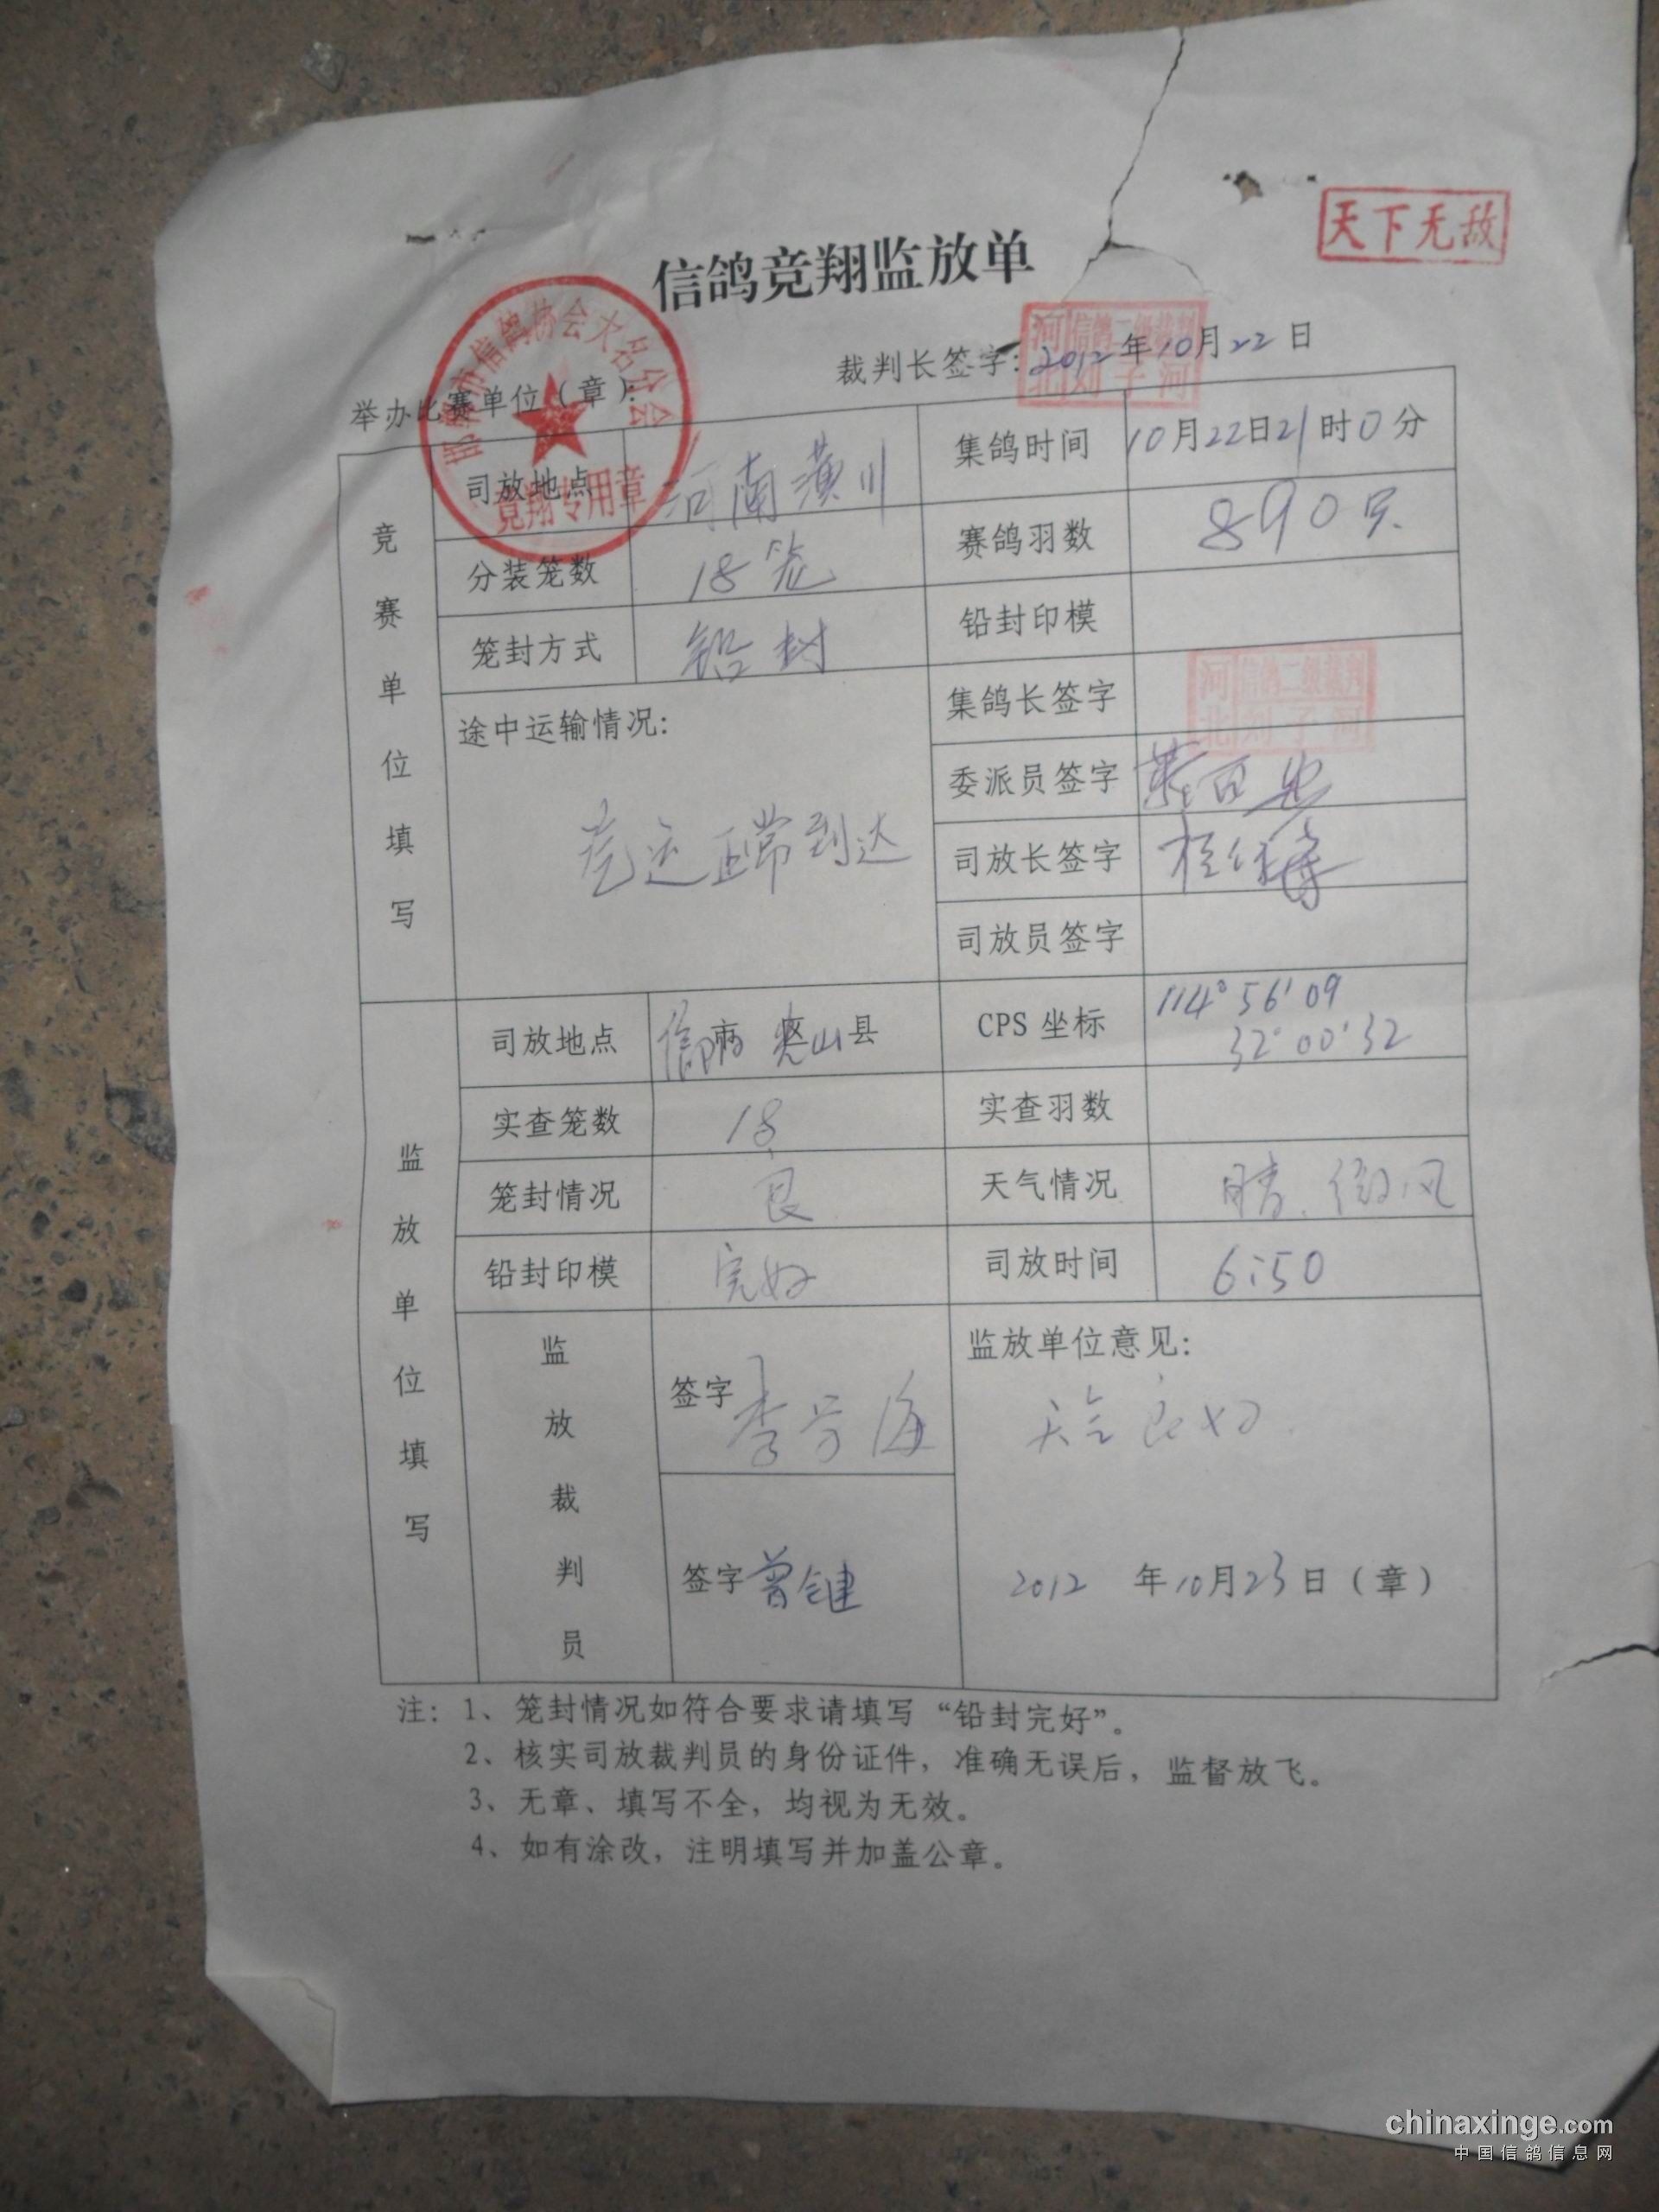 天下无敌
信鸽竞翔监放单
裁判长签字：2012年10月22日
举办比赛单位（章）：
市信鸽协会大名分会
竞翔专用章
河北 信鸽二级裁判 刘子河
竞赛单位填写
司放地点 河南潢川 集鸽时间 10月22日21时0分
分装笼数 18笼 赛鸽羽数 890只
笼封方式 铅封 铅封印模
途中运输情况：
运正常到达
集鸽长签字
河北 信鸽二级裁判 刘子河
委派员签字
司放长签字
司放员签字
监放单位填写
司放地点 山县 CPS 坐标 114°56'09
32°00'32
实查笼数 18 实查羽数
笼封情况 良 天气情况 晴.微风
铅封印模 完好 司放时间 6:50
监放裁判员
签字 李 海
签字 曾健
监放单位意见：
天气良好.
2012 年10月23日（章）
注：1、笼封情况如符合要求请填写“铅封完好”。
2、核实司放裁判员的身份证件，准确无误后，监督放飞。
3、无章、填写不全，均视为无效。
4、如有涂改，注明填写并加盖公章。
chinaxinge.com
中国信鸽信息网